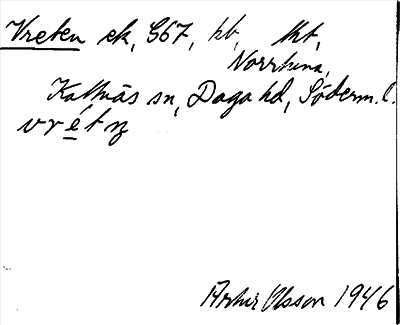 Vreten ek, G67, hb, tkt,
Norrtuna,
Kattnäs sn, Daga hd, Söderm. l.
vrétṇ
Arthur Olsson 1946